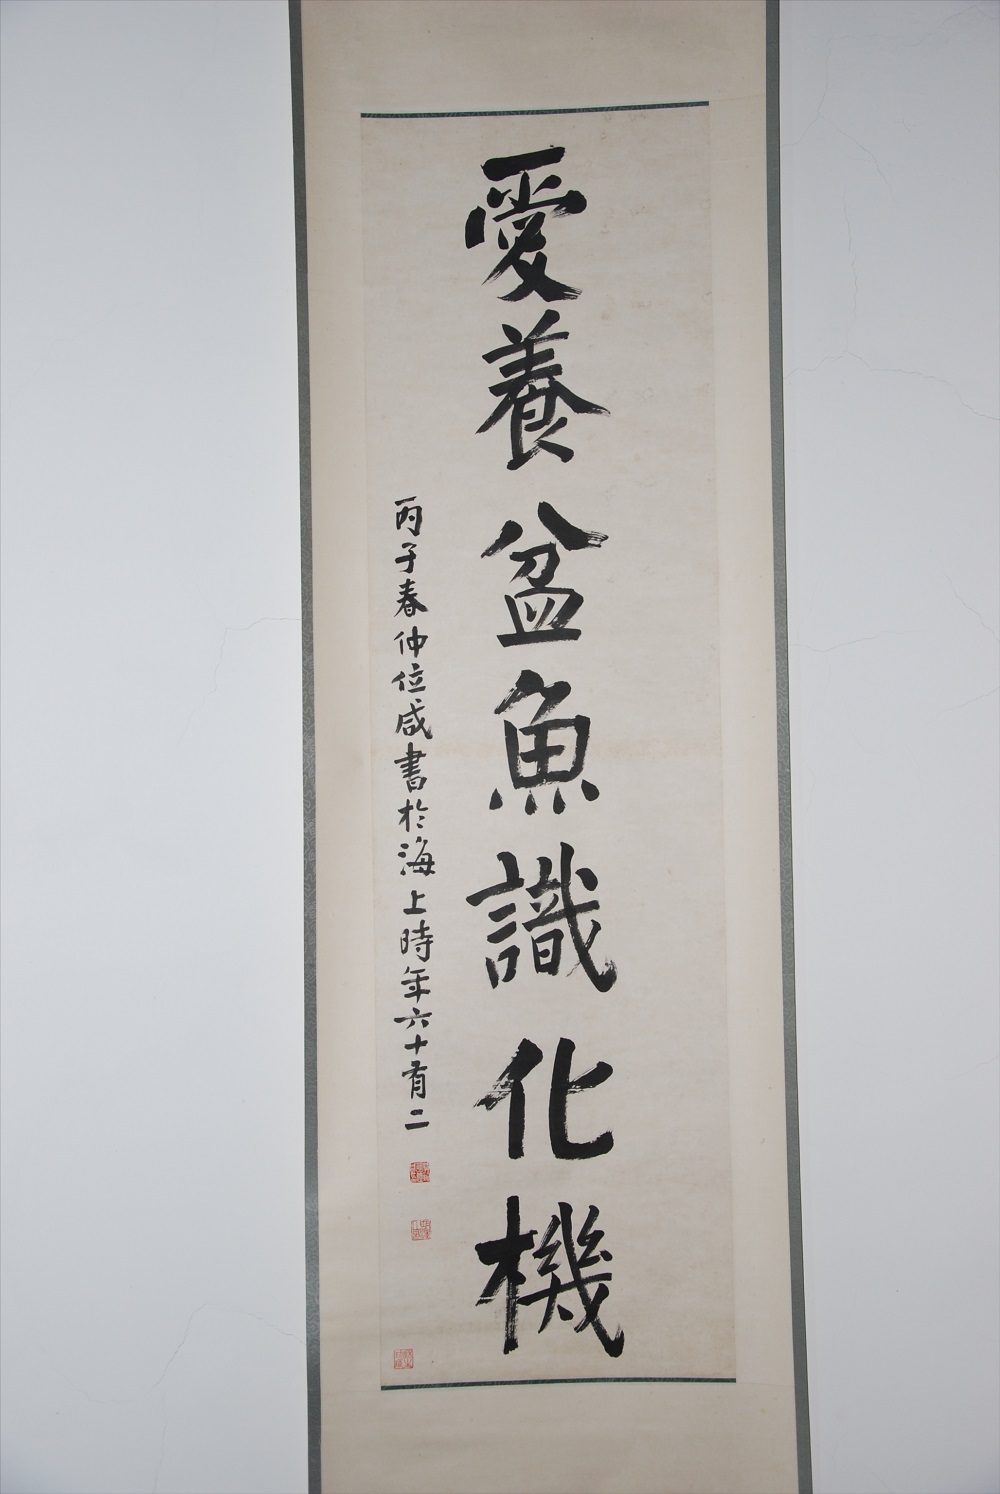 愛養盆魚識化機
丙子春仲位咸書於海上時年六十有二